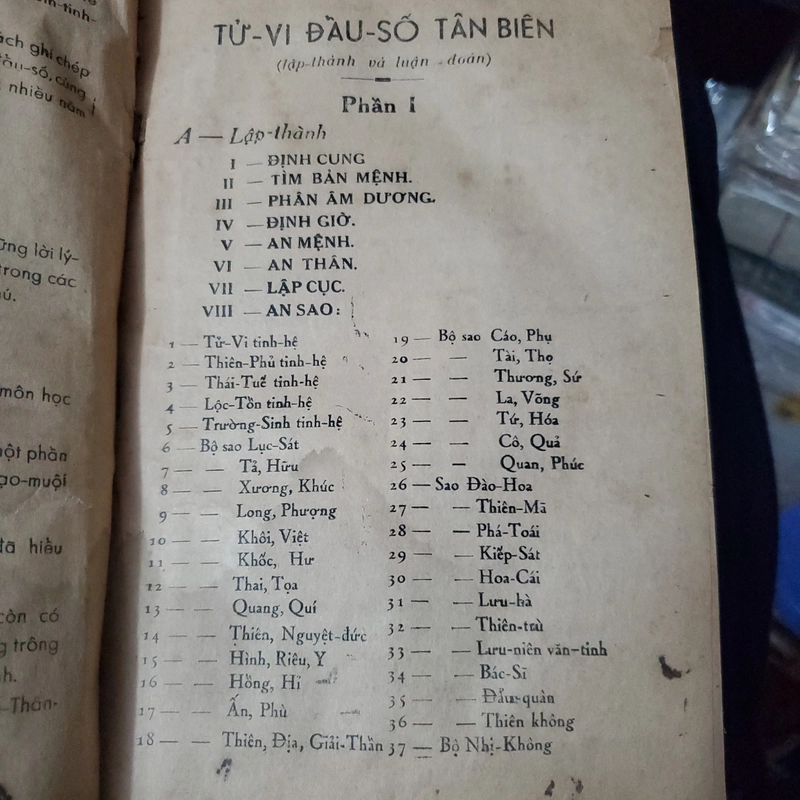 ách ghi chép
ầu-số, cùng
nhiều năm
ững lời lý-
trong các
ú.
môn học
một phần
ạo-muội
đã hiểu
còn có
g trông
h.
-Thân-
TỬ-VI ĐẦU-SỐ TÂN BIÊN
(lập-thành và luận-đoán)
Phần I
A — Lập-thành
I — ĐỊNH CUNG
II — TÌM BẢN MỆNH.
III — PHÂN ÂM DƯƠNG.
IV — ĐỊNH GIỜ.
V — AN MỆNH.
VI — AN THÂN.
VII — LẬP CỤC.
VIII — AN SAO:
1 — Tử-Vi tinh-hệ
2 — Thiên-Phủ tinh-hệ
3 — Thái-Tuế tinh-hệ
4 — Lộc-Tồn tinh-hệ
5 — Trường-Sinh tinh-hệ
6 — Bộ sao Lục-Sát
7 — — Tả, Hữu
8 — — Xương, Khúc
9 — — Long, Phượng
10 — — Khôi, Việt
11 — — Khốc, Hư
12 — — Thai, Tọa
13 — — Quang, Quí
14 — — Thiên, Nguyệt-đức
15 — — Hình, Riêu, Y
16 — — Hồng, Hỉ
17 — — Ấn, Phù
18 — — Thiên, Địa, Giải-Thần
19 — Bộ sao Cáo, Phụ
20 — — Tài, Thọ
21 — — Thương, Sứ
22 — — La, Võng
23 — — Tứ, Hóa
24 — — Cô, Quả
25 — — Quan, Phúc
26 — Sao Đào-Hoa
27 — — Thiên-Mã
28 — — Phá-Toái
29 — — Kiếp-Sát
30 — — Hoa-Cái
31 — — Lưu-hà
32 — — Thiên-trù
33 — — Lưu-niên văn-tinh
34 — — Bác-Sĩ
35 — — Đẩu-quân
36 — — Thiên không
37 — Bộ Nhị-Không